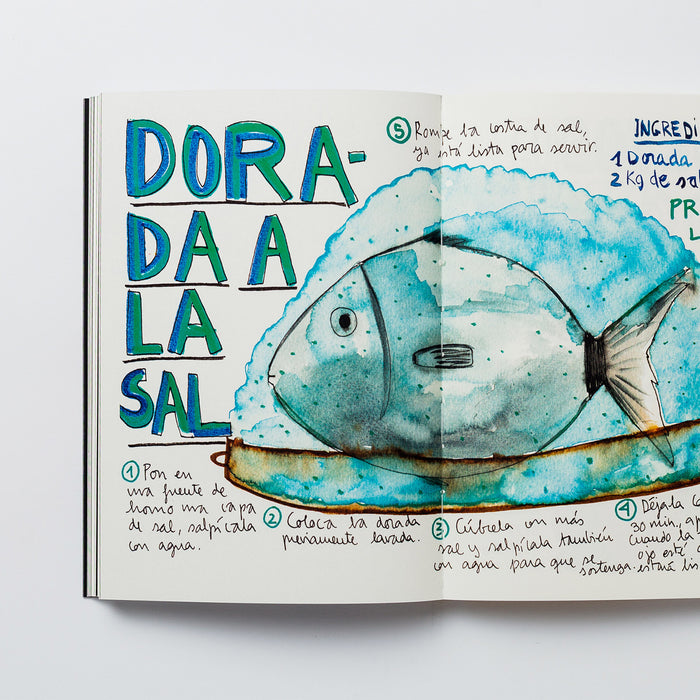 DORA-
DA A
LA
SAL
INGREDI
1 Dorada
2 Kg de sal
PR
L
1 Pon en
una fuente de
horno una capa
de sal, salpícala
con agua.
2 Coloca la dorada
previamente lavada.
3 Cúbrela con más
sal y salpícala también
con agua para que se
sostenga.
4 Déjala
30 min,
cuando la
ojo esté
estará lis
5 Rompe la costra de sal,
ya está lista para servir.